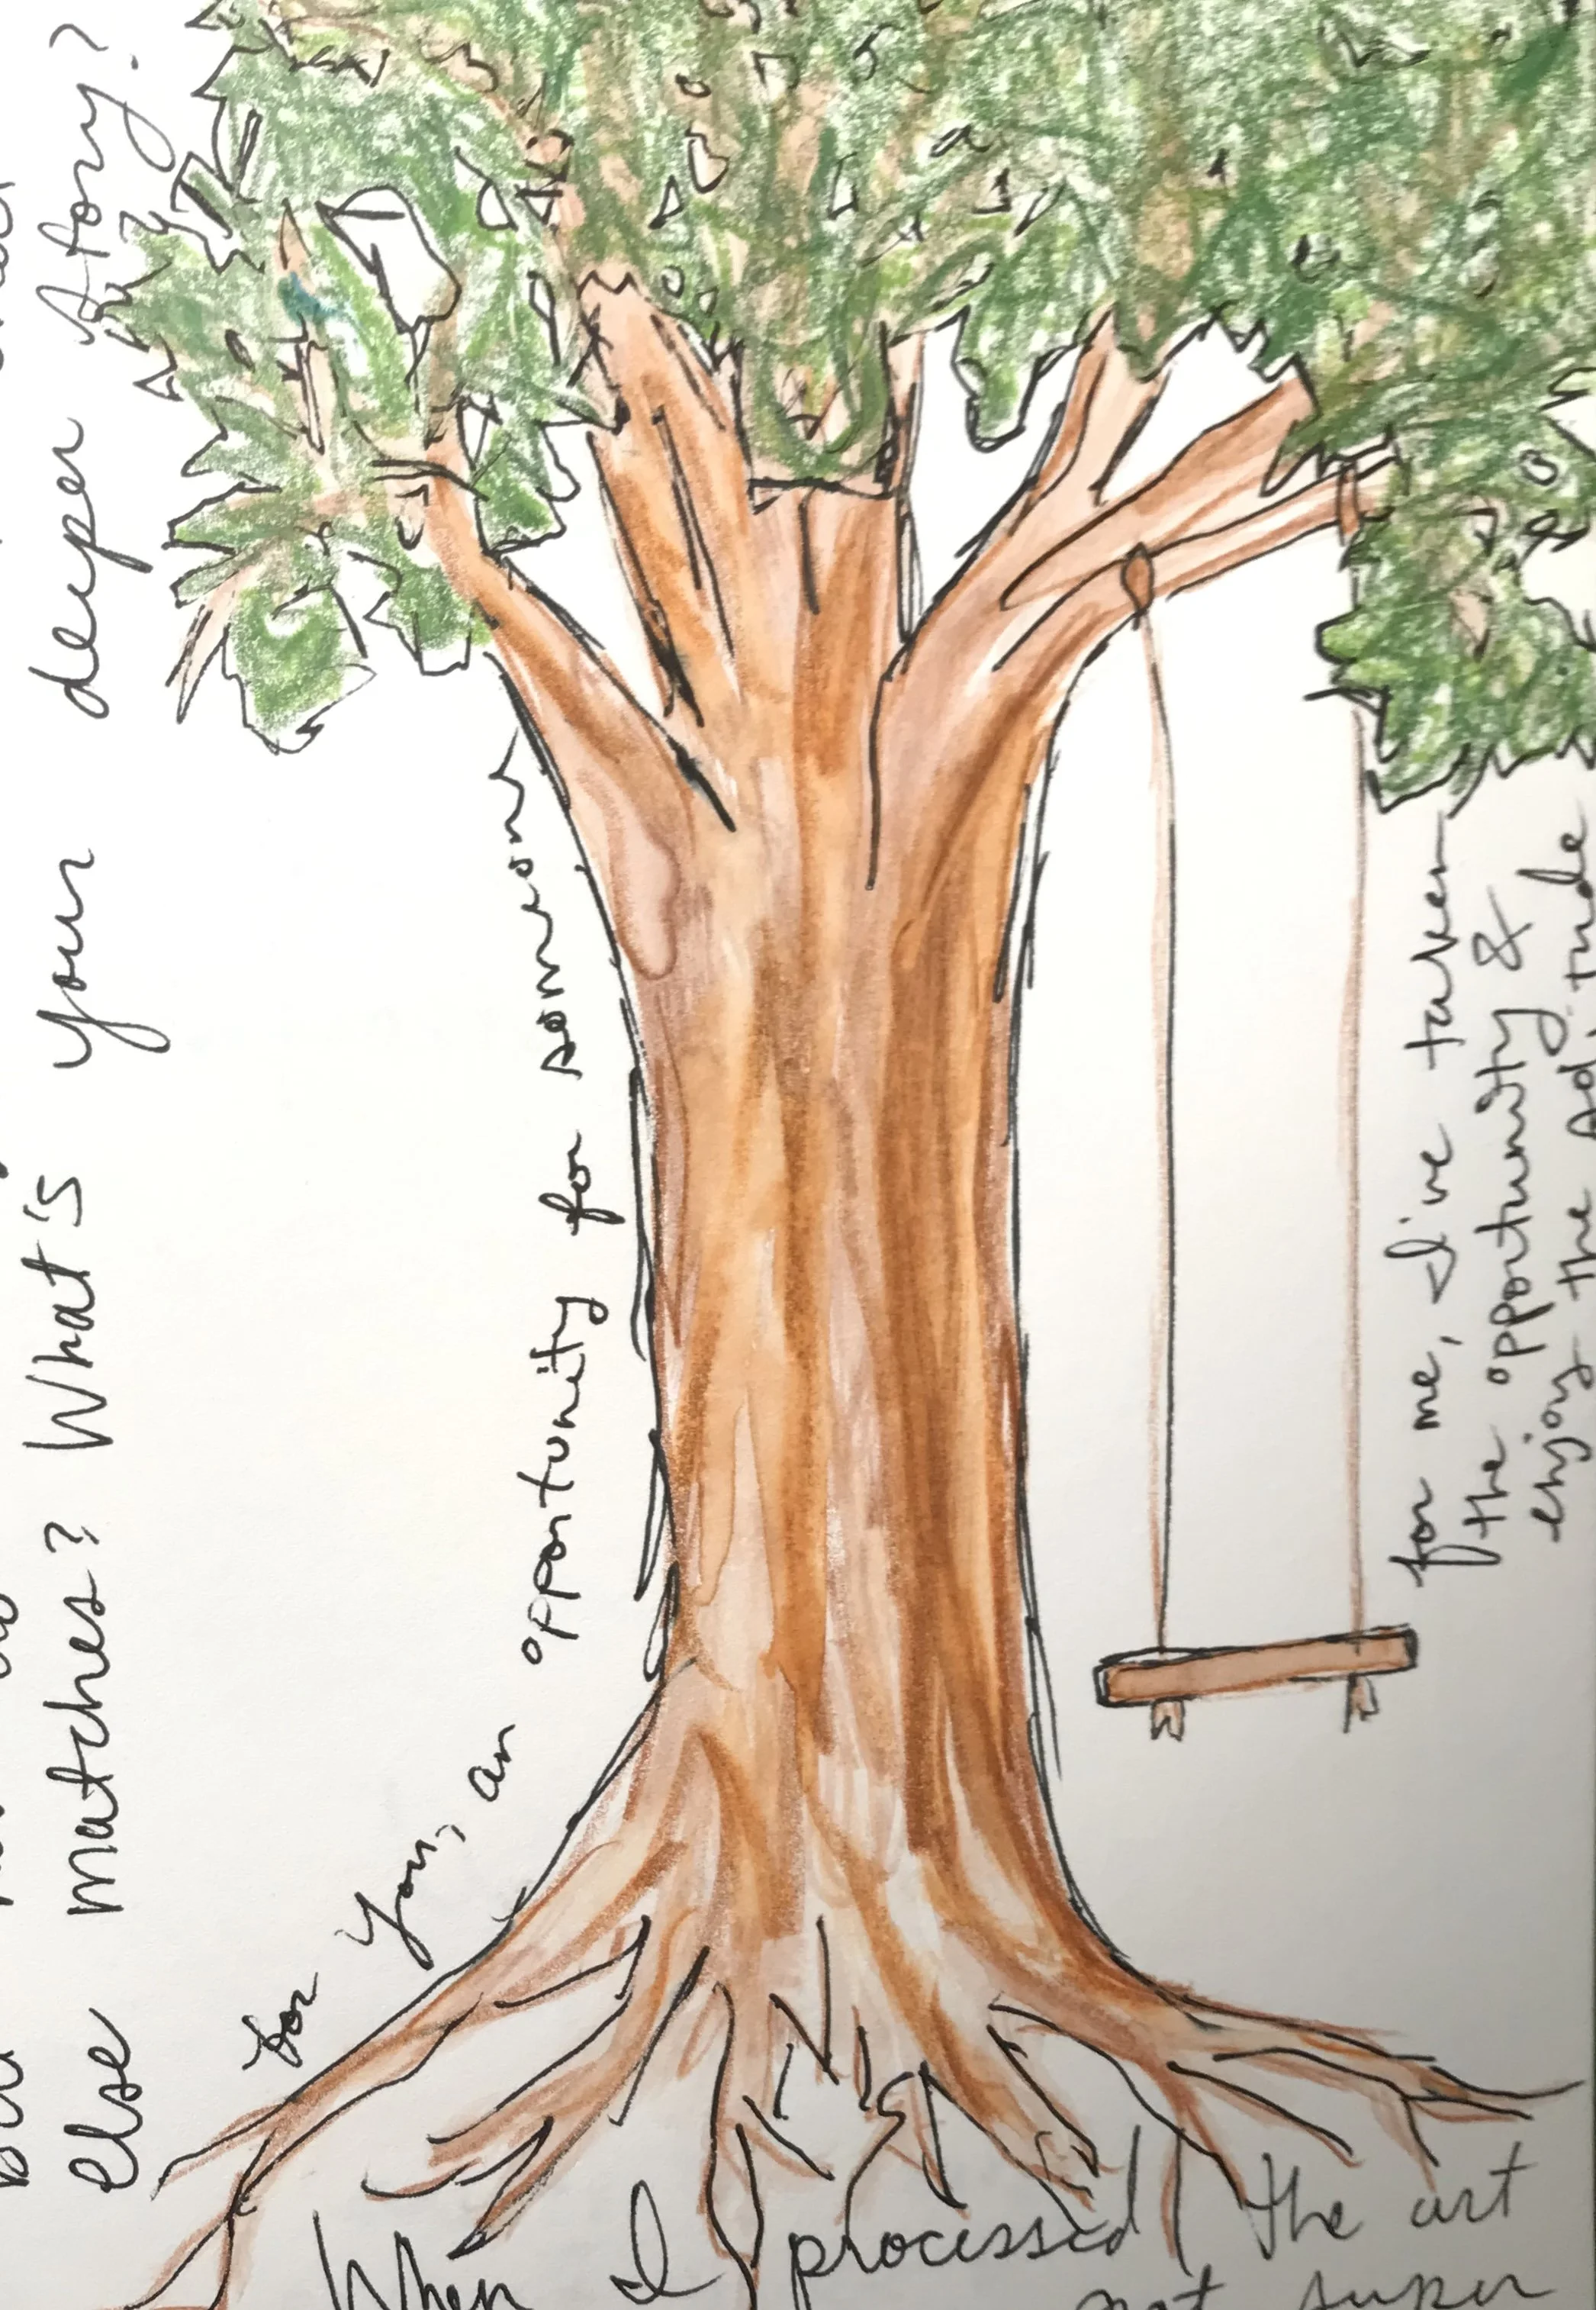 else matches? What's your deeper story?
for you, an opportunity for someone
for me, I've taken
the opportunity &
enjoy the
When I processed the art
not super